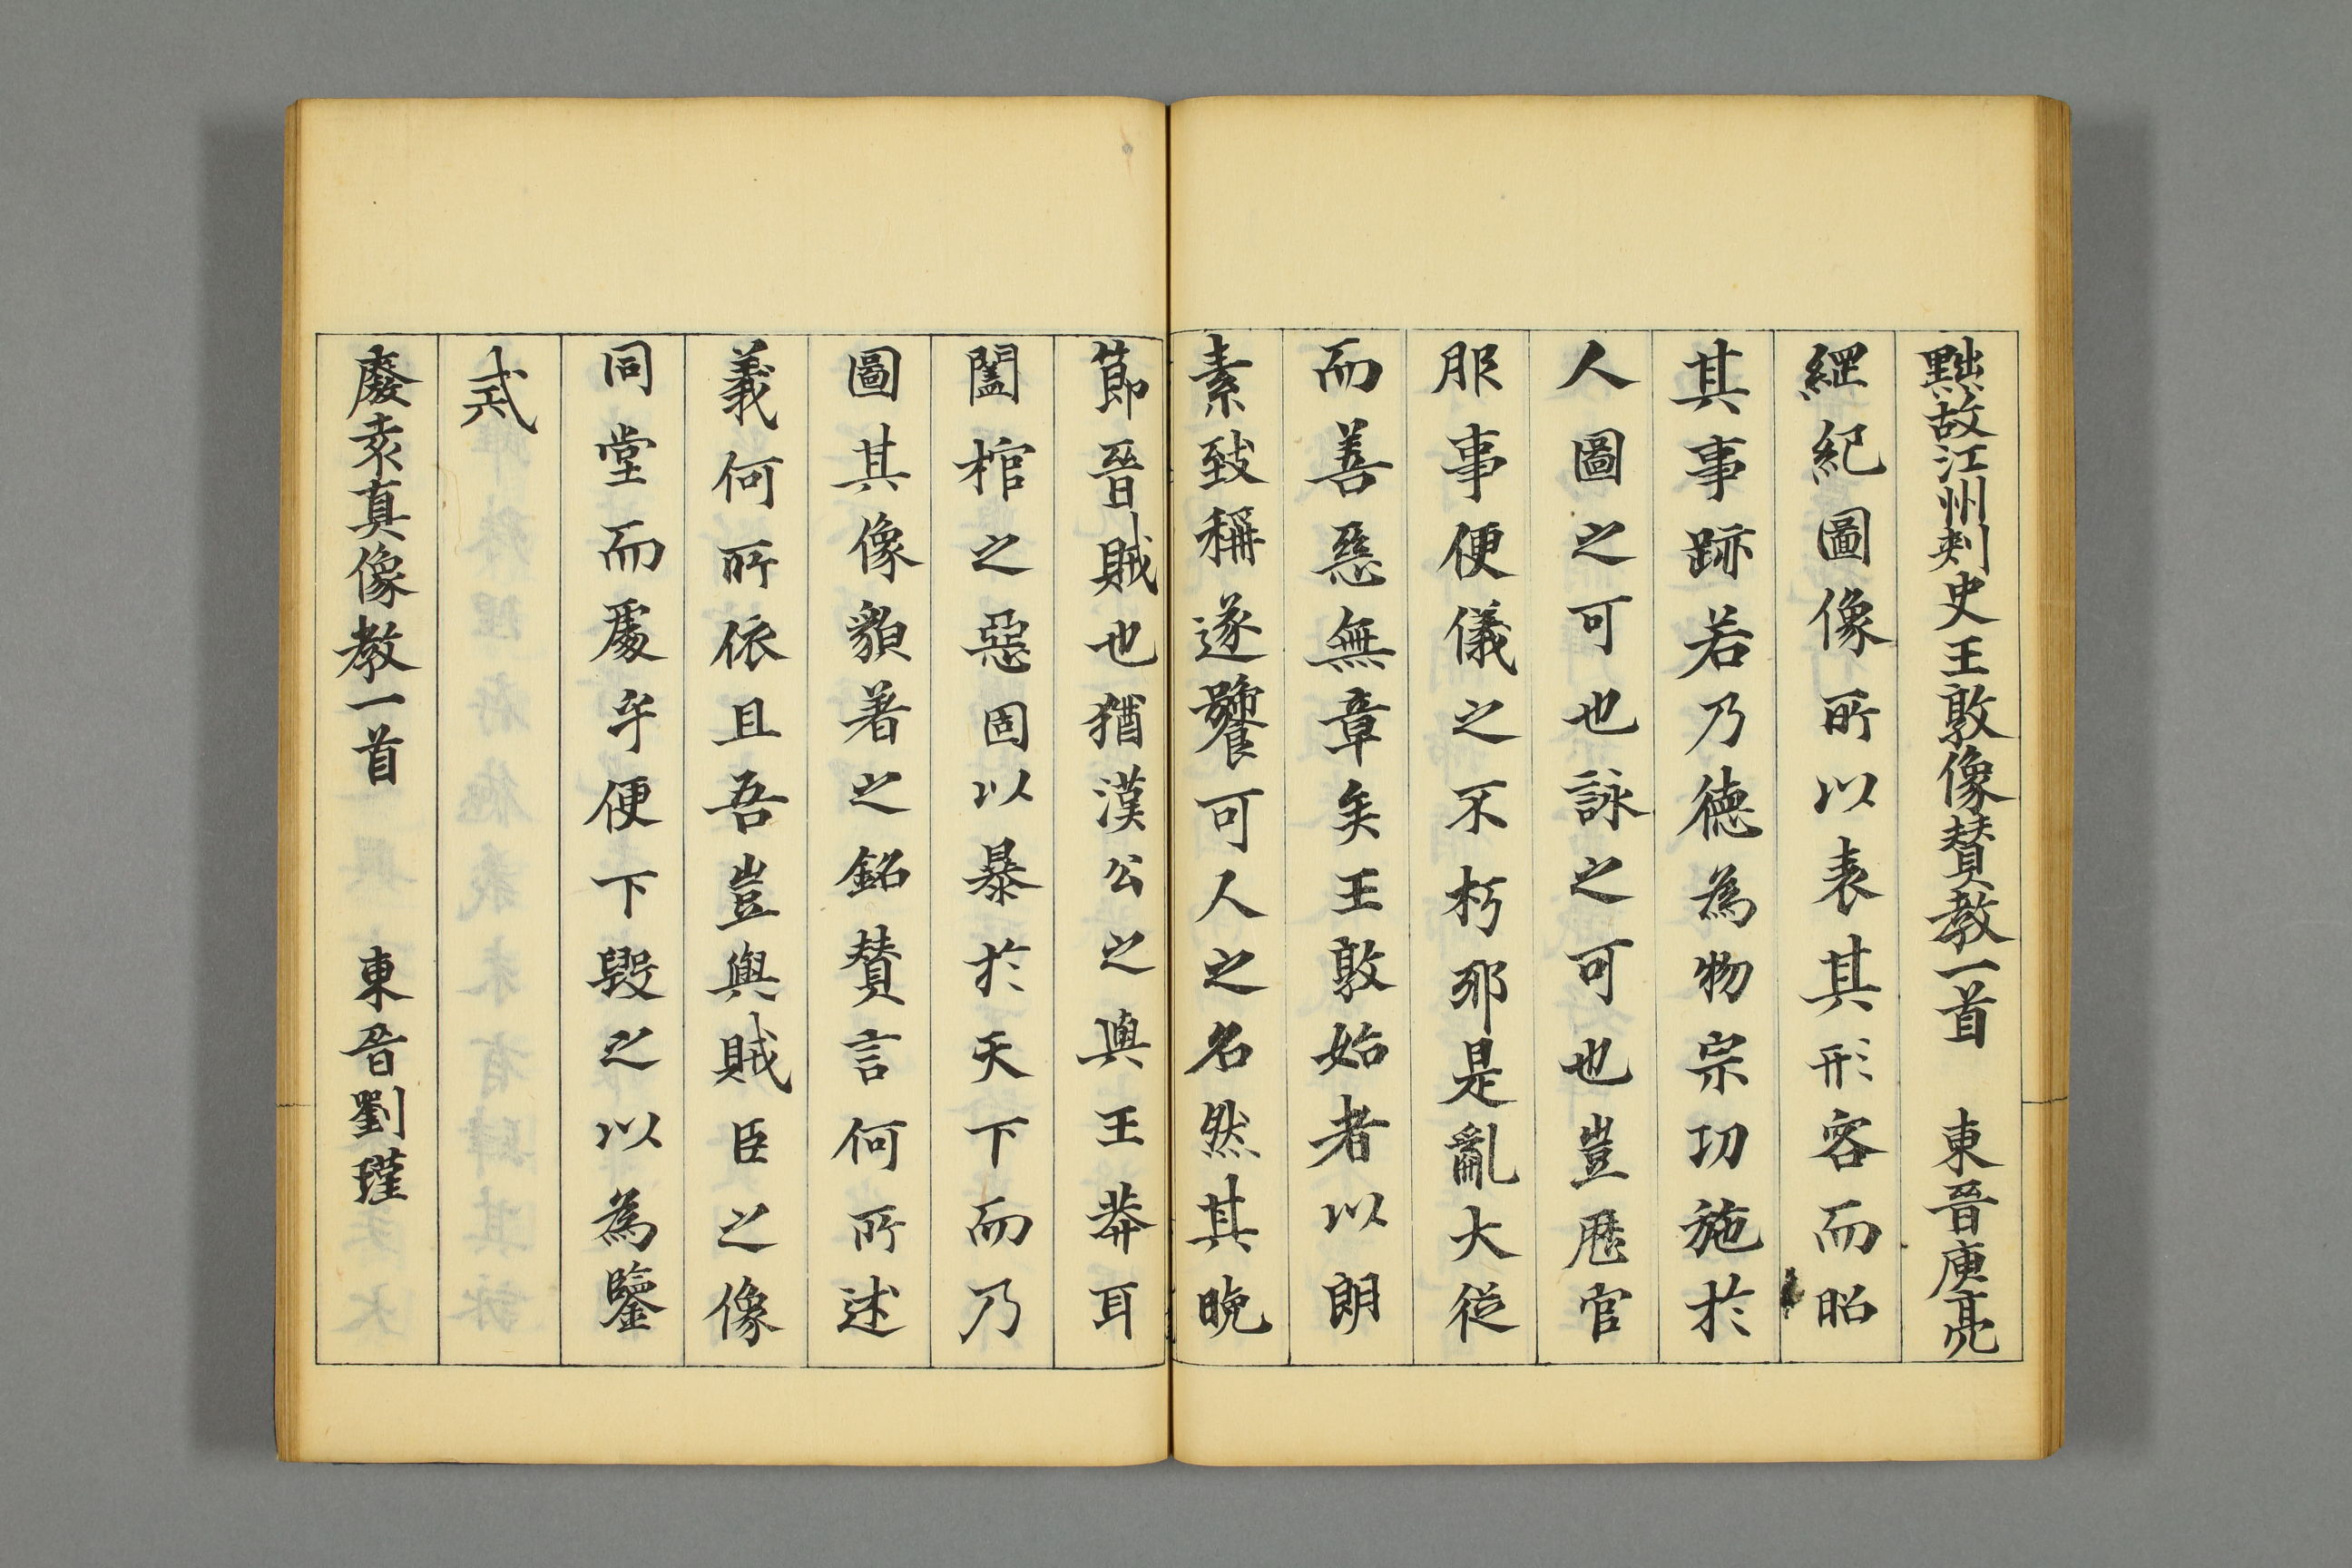 黜故江州刾史王敦像賛教一首　東晉庾亮
綱紀圖像所以表其形容而昭
其事跡若乃德為物宗功施於
人圖之可也詠之可也豈歷官
服事便儀之不朽耶是亂大從
而善惡無章矣王敦始者以朗
素致稱遂饕可人之名然其晚
節晉賊也猶漢公之與王莽耳
闔棺之惡固以暴於天下而乃
圖其像貌著之銘賛言何所述
義何所依且吾豈與賊臣之像
同堂而處乎便下毀之以為鑒
戒
廢袁真像教一首　東晉劉瑾